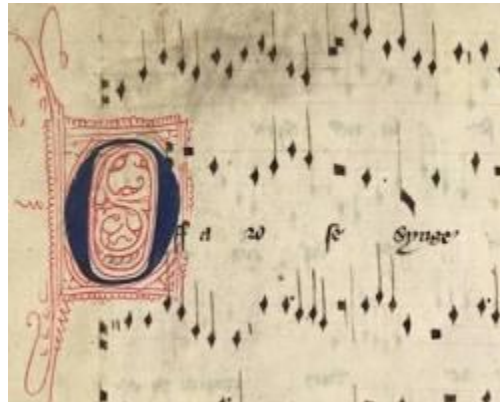 Off a ro se synge